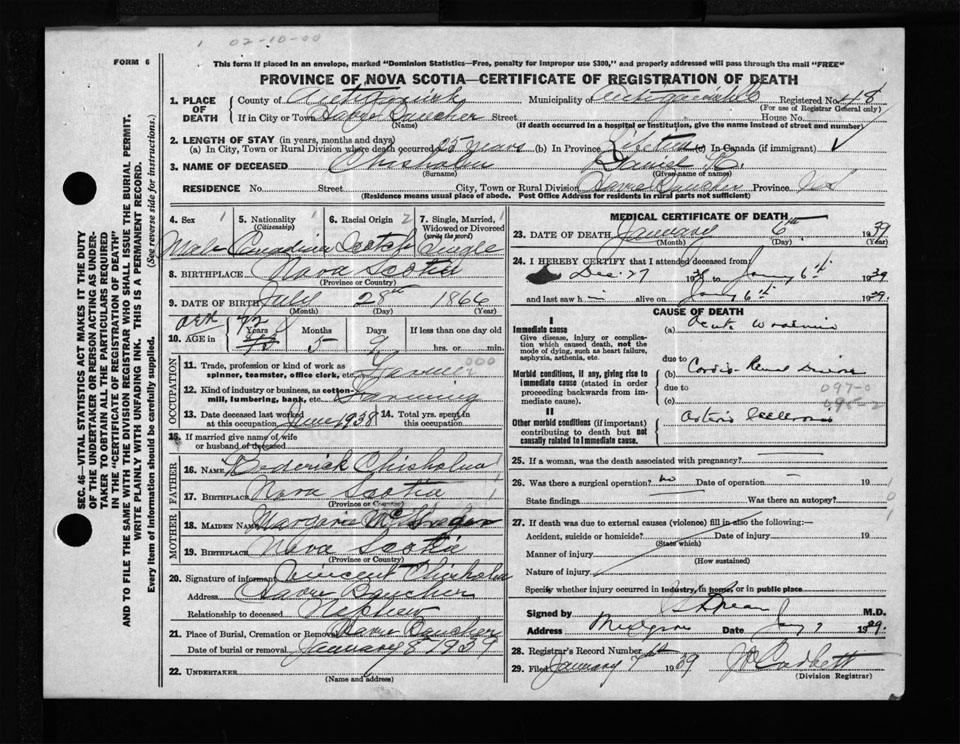 02-10-00
FORM 6
This form if placed in an envelope, marked "Dominion Statistics—Free, penalty for improper use $300," and properly addressed will pass through the mail "FREE"
PROVINCE OF NOVA SCOTIA—CERTIFICATE OF REGISTRATION OF DEATH
SEC. 46—VITAL STATISTICS ACT MAKES IT THE DUTY
OF THE UNDERTAKER OR PERSON ACTING AS UNDER-
TAKER TO OBTAIN ALL THE PARTICULARS REQUIRED
IN THE "CERTIFICATE OF REGISTRATION OF DEATH"
AND TO FILE THE SAME WITH THE DIVISION REGISTRAR WHO SHALL ISSUE THE BURIAL PERMIT.
WRITE PLAINLY WITH UNFADING INK. THIS IS A PERMANENT RECORD.
Every item of information should be carefully supplied. (See reverse side for instructions.)
1. PLACE OF DEATH County of Antigonish Municipality Antigonish Registered No. 48
(For use of Registrar General only)
If in City or Town Havre Baucher Street House No.
(Name) (If death occurred in a hospital or institution, give the name instead of street and number)
2. LENGTH OF STAY (in years, months and days)
(a) In City, Town or Rural Division where death occurred years (b) In Province (c) In Canada (if immigrant)
3. NAME OF DECEASED Chisholm Daniel
(Surname) (Given name or names)
RESIDENCE No. Street City, Town or Rural Division Havre Baucher Province N.S.
(Residence means usual place of abode. Post Office Address for residents in rural parts not sufficient)
4. Sex 5. Nationality (Citizenship) 6. Racial Origin 2 7. Single, Married, Widowed or Divorced (write the word)
Male Canadian Scotch Single
8. BIRTHPLACE Nova Scotia
(Province or Country)
9. DATE OF BIRTH July 28th 1866
(Month) (Day) (Year)
10. AGE in 72 Years 5 Months 9 Days If less than one day old
hrs. or min.
OCCUPATION
11. Trade, profession or kind of work as spinner, teamster, office clerk, etc. Farmer
12. Kind of industry or business, as cotton-mill, lumbering, bank, etc. Farming
13. Date deceased last worked at this occupation June 1938 14. Total yrs. spent in this occupation
15. If married give name of wife or husband of deceased
FATHER
16. NAME Roderick Chisholm
17. BIRTHPLACE Nova Scotia
(Province or Country)
MOTHER
18. MAIDEN NAME Margaret McGregor
19. BIRTHPLACE Nova Scotia
(Province or Country)
20. Signature of informant Vincent Chisholm
Address Havre Baucher
Relationship to deceased Nephew
21. Place of Burial, Cremation or Removal Havre Baucher
Date of burial or removal January 8 1939
22. UNDERTAKER
(Name and address)
MEDICAL CERTIFICATE OF DEATH
23. DATE OF DEATH January 6th 1939
(Month) (Day) (Year)
24. I HEREBY CERTIFY that I attended deceased from:
Dec. 27 1938 to Jany 6th 1939
and last saw him alive on Jany 6th 1939.
CAUSE OF DEATH
I
Immediate cause (a) Acute Uraemia
Give disease, injury or complication which caused death, not the mode of dying, such as heart failure, asphyxia, asthenia, etc.
due to
Morbid conditions, if any, giving rise to immediate cause (stated in order proceeding backwards from immediate cause). (b) Cardio-Renal Disease
due to 097-0
(c) 095-2
II
Other morbid conditions (if important) contributing to death but not causally related to immediate cause. Arterio Sclerosis
25. If a woman, was the death associated with pregnancy?
26. Was there a surgical operation? no Date of operation 19
State findings Was there an autopsy?
27. If death was due to external causes (violence) fill in also the following:—
Accident, suicide or homicide? Date of injury 19
(State which)
Manner of injury
(How sustained)
Nature of injury
Specify whether injury occurred in industry, in home, or in public place
Signed by M.D.
Address Mulgrave Date Jany 7 1939.
28. Registrar's Record Number
29. Filed January 7 1939 J. Corbett
(Division Registrar)